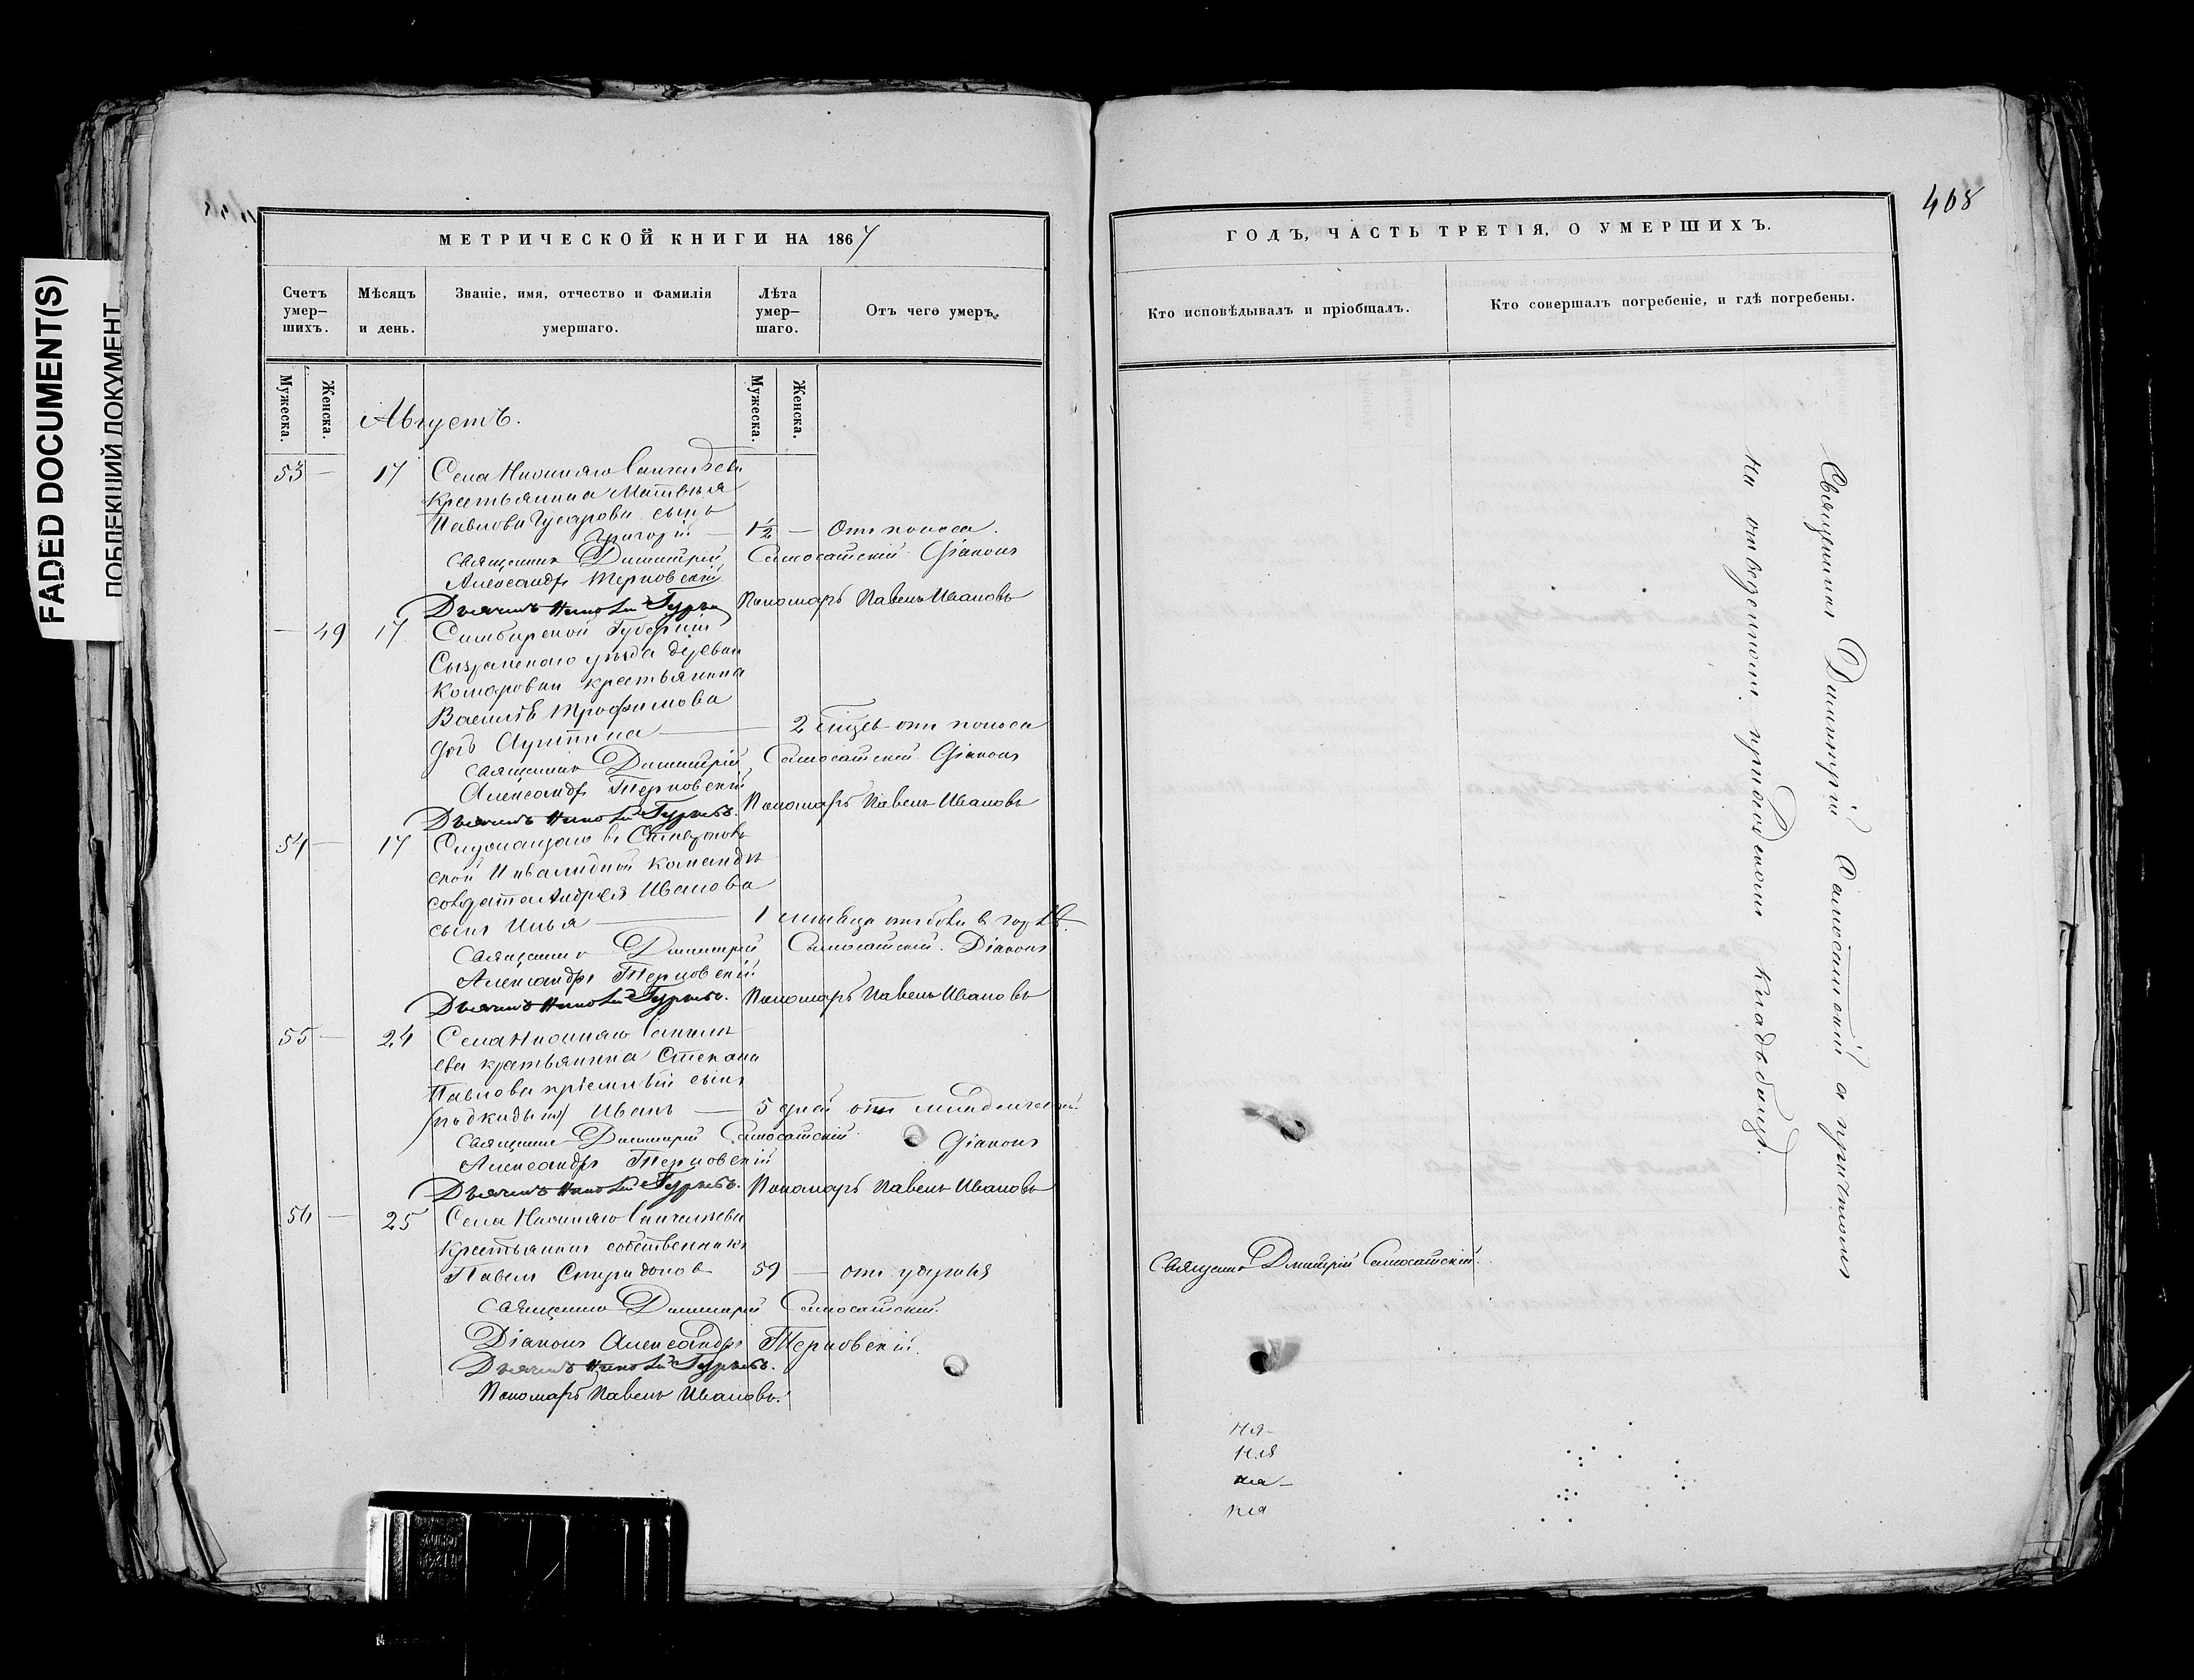 FADED DOCUMENT(S)
ПОБЛЕКШИЙ ДОКУМЕНТ
МЕТРИЧЕСКОЙ КНИГИ НА 1867
Счетъ умер–шихъ.
Мѣсяцъ и день.
Званіе, имя, отчество и фамилія умершаго.
Лѣта умер–шаго.
Отъ чего умеръ.
Мужеска.
Женска.
Мужеска.
Женска.
Августъ.
53 — 17 Села Нижняго Санчелѣева
крестьянина Матвѣя
Павлова Гусарова сынъ
Григорій — 1½ — Отъ поноса.
Священникъ Димитрій Самосатскій Діаконъ
Александръ Терновскій
Дьячекъ Гурьевъ Пономарь Павелъ Ивановъ
— 49 17 Симбирской Губерніи
Сызранскаго уѣзда деревни
Комаровки крестьянина
Василія Трофимова
дочь — 2 отъ поноса
Священникъ Димитрій Самосатскій Діаконъ
Александръ Терновскій
Дьячекъ Гурьевъ. Пономарь Павелъ Ивановъ
54 — 17 въ Ставрополь
ской Инвалидной командѣ
солдата Андрея Иванова
сынъ Илья — 1 мѣсяца отъ боли въ горлѣ.
Священникъ Димитрій Самосатскій. Діаконъ
Александръ Терновскій
Дьячекъ Гурьевъ. Пономарь Павелъ Ивановъ
55 — 24 Села Нижняго Санчелѣ
ева крестьянина Степана
Павлова пріемный сынъ
(подкидышъ) Иванъ — 5 дней отъ младенческой
Священникъ Димитрій Самосатскій Діаконъ
Александръ Терновскій
Дьячекъ Гурьевъ. Пономарь Павелъ Ивановъ
56 — 25 Села Нижняго Санчелѣева
Крестьянинъ собственникъ
Павелъ Спиридонов 59 — отъ удушья
Священникъ Димитрій Самосатскій.
Діаконъ Александръ Терновскій.
Дьячекъ Гурьевъ.
Пономарь Павелъ Ивановъ.
408
ГОДЪ, ЧАСТЬ ТРЕТІЯ, О УМЕРШИХЪ.
Кто исповѣдывалъ и пріобщалъ.
Кто совершалъ погребеніе, и гдѣ погребены.
Священникъ Димитрій Самосатскій.
Священникъ Димитрій Самосатскій съ причтомъ
На отведенномъ приходскомъ кладбищѣ.